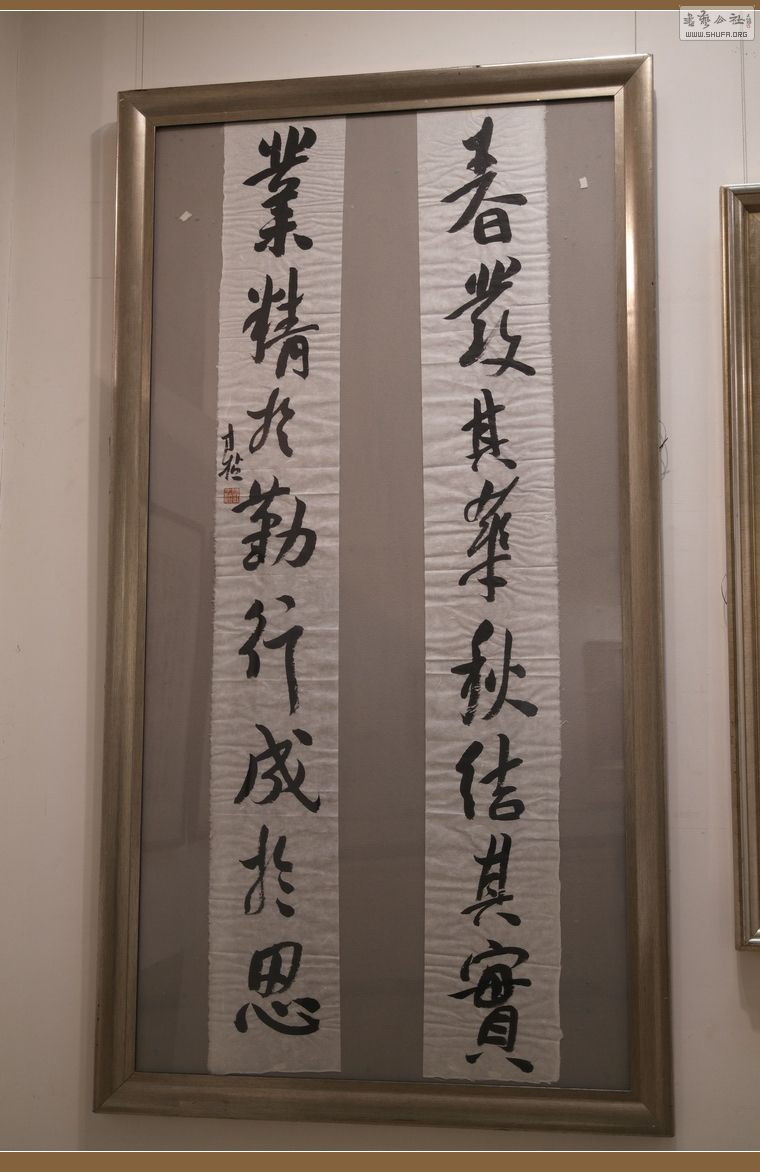 春發其華秋結其實
業精於勤行成於思
書藝公社
WWW.SHUFA.ORG